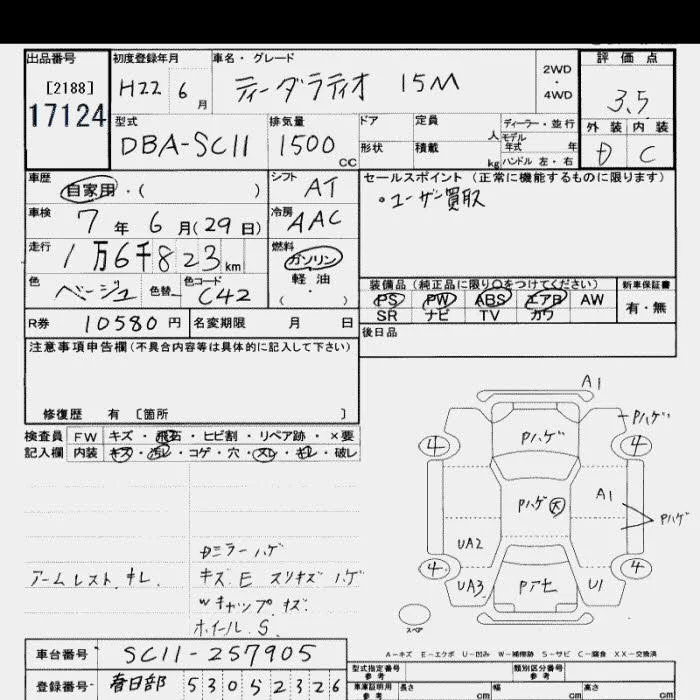 出品番号
[2188]
17124
初度登録年月
H22 6月
車名・グレード
ティーダラティオ 15M
2WD
・
4WD
評価点
3.5
外装 内装
D C
型式
DBA-SC11
排気量
1500 CC
ドア
形状
定員
人
積載
kg
ディーラー・並行
モデル
年式 年
ハンドル 左・右
車歴
自家用・( )
シフト
AT
車検
7年6月(29日)
冷房
AAC
走行
1万6千823km
燃料
ガソリン
・
軽油
( )
色
ベージュ
色替
色コード
C42
R券
10580円
名変期限 月 日
セールスポイント (正常に機能するものに限ります)
・ユーザー買取
装備品 (純正品に限り○をつけてください)
PS PW ABS エアB AW
SR ナビ TV カワ
新車保証書
有・無
後日品
注意事項申告欄(不具合内容等は具体的に記入して下さい)
修復歴 有 [箇所 ]
検査員
記入欄
FW キズ・飛石・ヒビ割・リペア跡・×要
内装 キズ・汚レ・コゲ・穴・スレ・キレ・破レ
アームレスト キレ
Dミラーハゲ
キズ E スリキズ ハゲ
Wキャップ キズ
ホイール S
A1
Pハゲ
Pハゲ
4 4
Pハゲ 大
A1
Pハゲ
UA2
4 4
UA3
U1
スペア
A-キズ E-エクボ U-凹み W-補修跡 S-サビ C-腐食 XX-交換済
車台番号 SC11-257905
登録番号 春日部 530 5 2326
型式指定番号
参考
類別区分番号
参考
車庫証明用
参考
長さ cm
幅 cm
高さ cm